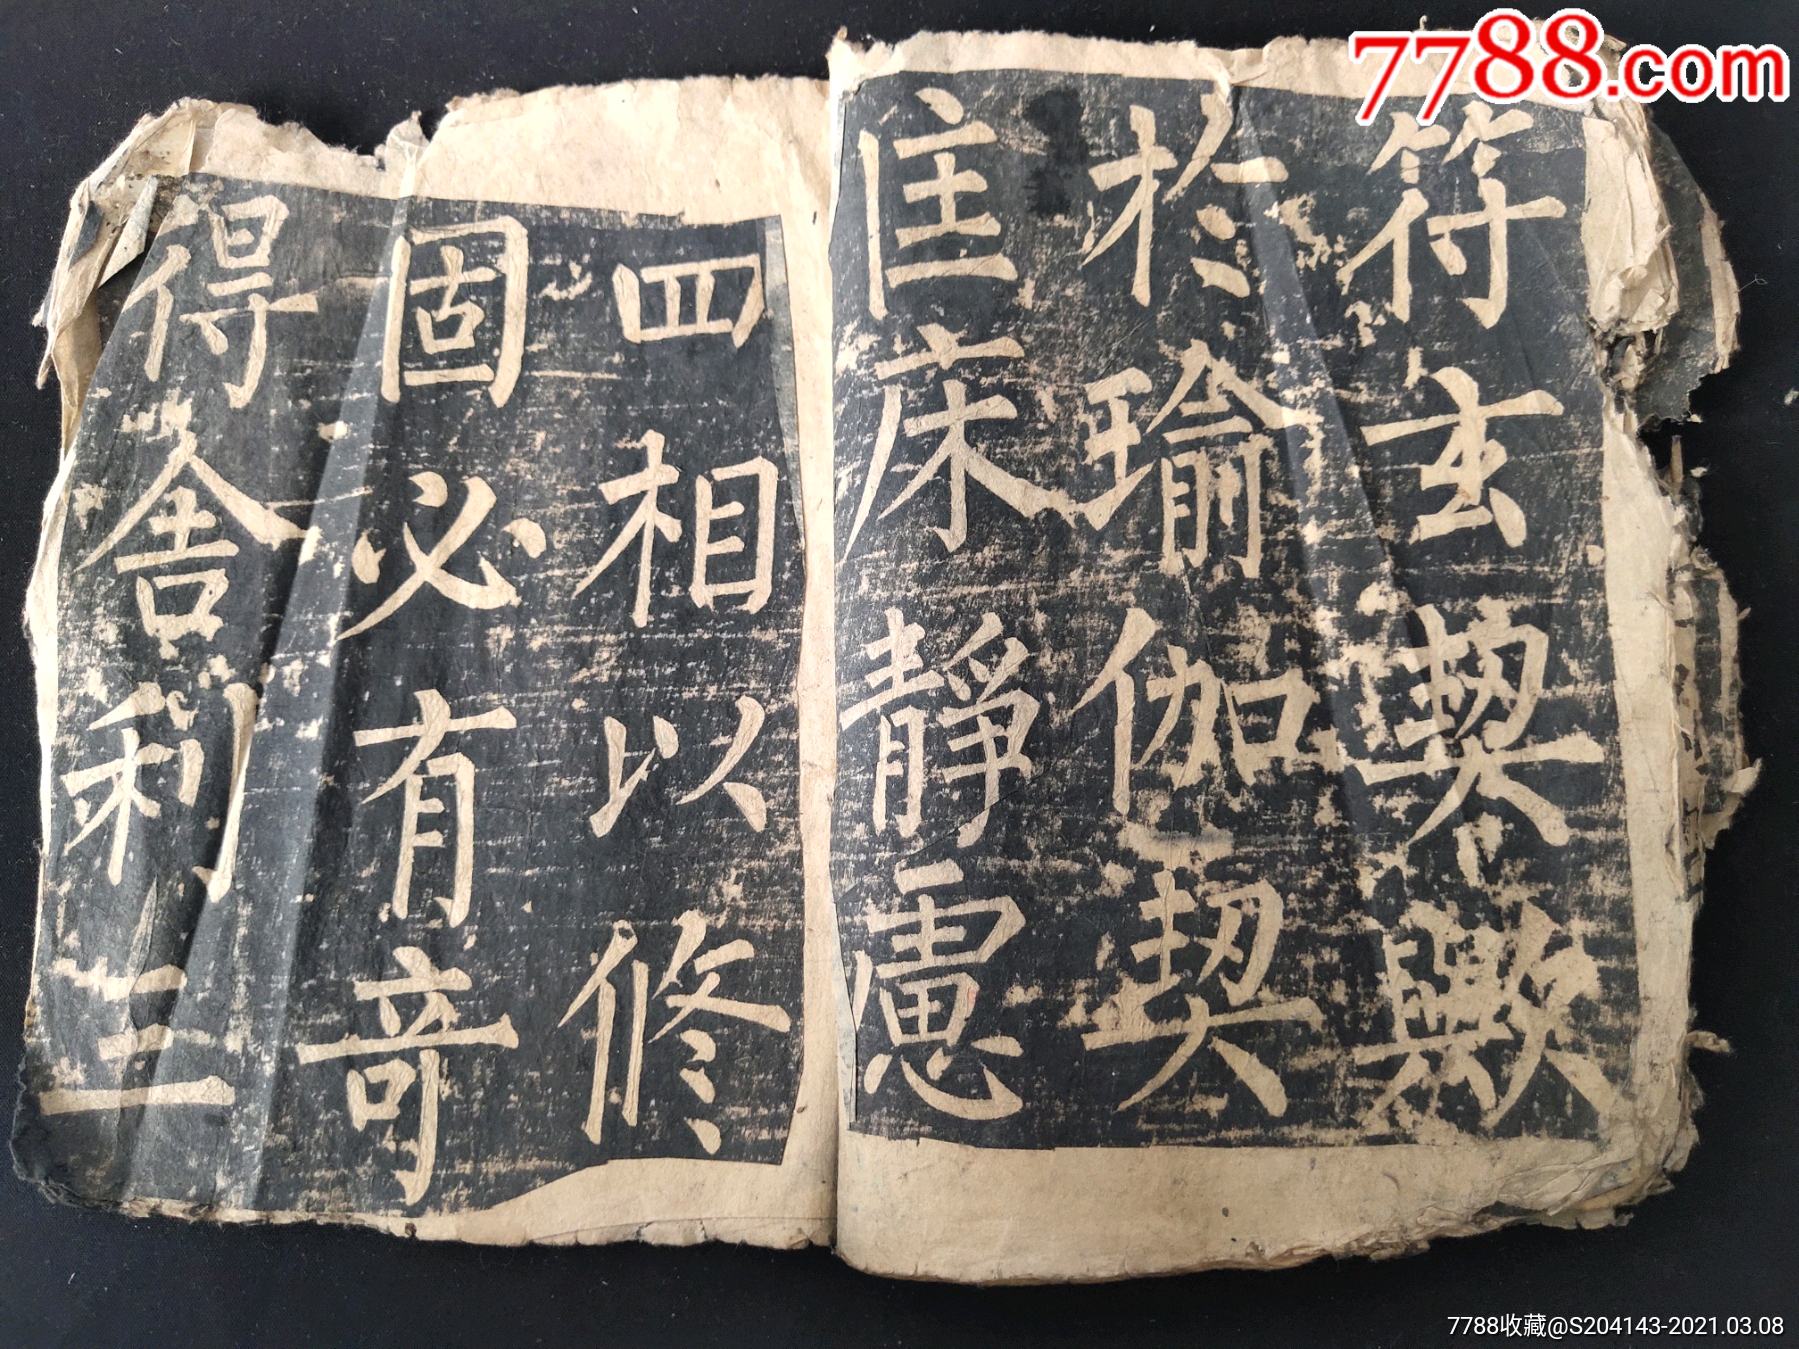 符玄契歟
於瑜伽契
匡床靜慮
四相以修
固必有奇
得舍利三
7788.com
7788收藏@S204143-2021.03.08